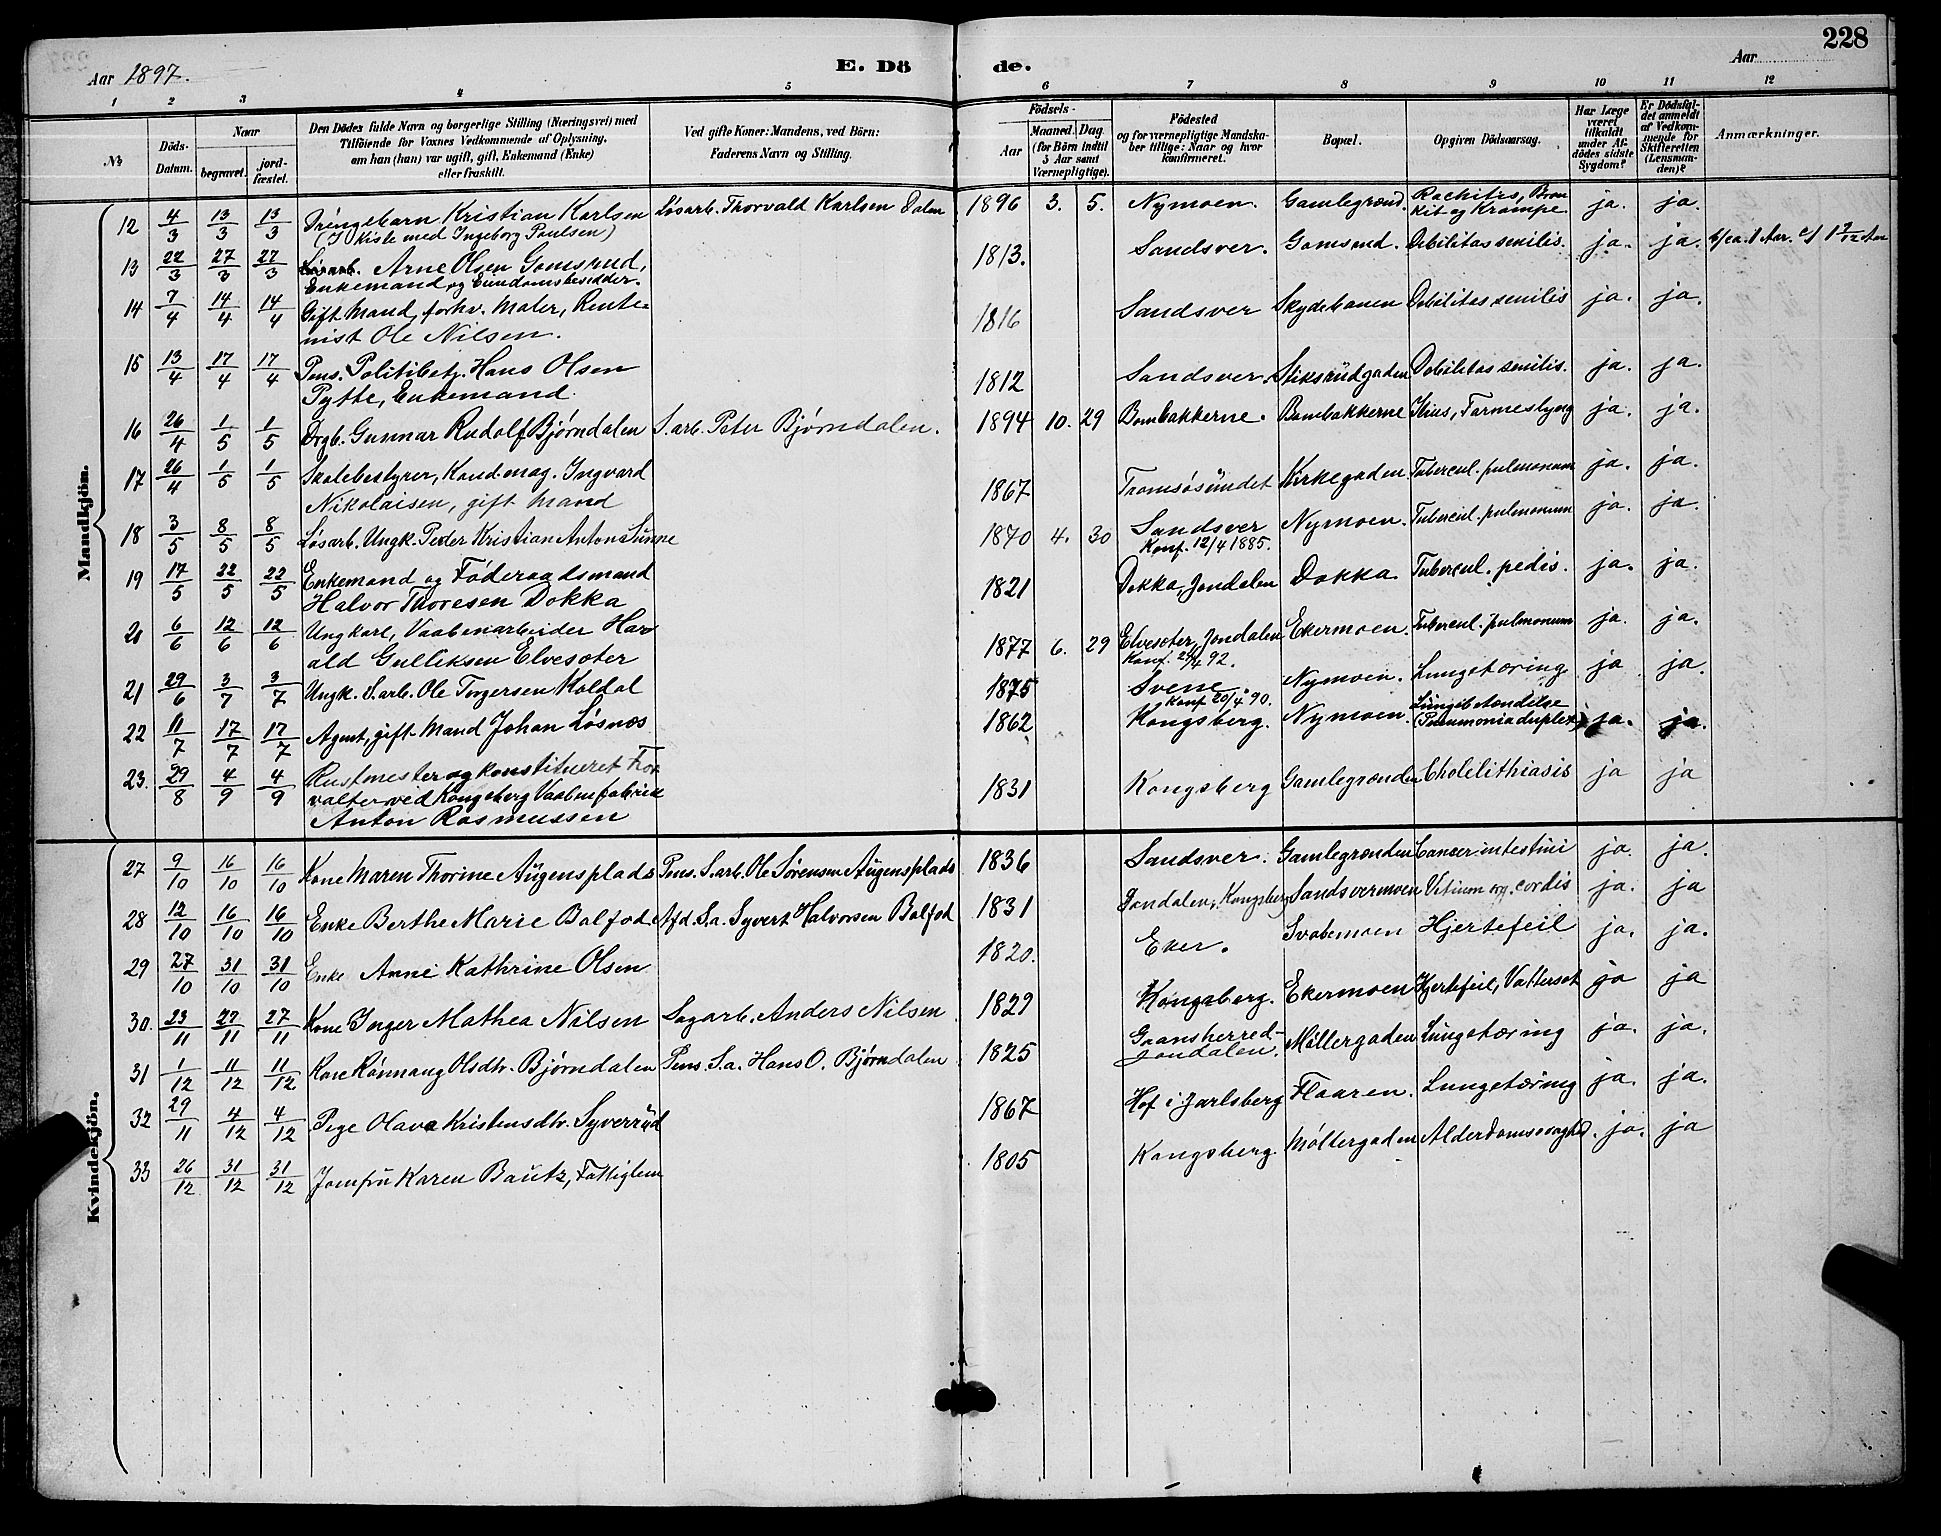 228
Aar 1897.
E. Dö de.
Aar
1 2 3 4 5 6 7 8 9 10 11 12
№
Döds-Datum.
Naar
begravet.
jord-fæstet.
Den Dödes fulde Navn og borgerlige Stilling (Næringsvei) med
Tilföiende for Voxnes Vedkommende af Oplysning,
om han (hun) var ugift, gift, Enkemand (Enke)
eller fraskilt.
Ved gifte Koner: Mandens, ved Börn:
Faderens Navn og Stilling.
Födsels-
Aar
Maaned. Dag.
(for Börn indtil
5 Aar samt
Værnepligtige).
Födested
og for værnepligtige Mandska-
ber tillige: Naar og hvor
konfirmeret.
Bopæl.
Opgiven Dödsaarsag.
Har Læge
været
tilkaldt
under Af-
dödes sidste
Sygdom?
Er Dödsfal-
det anmeldt
af Vedkom-
mende for
Skifteretten
(Lensman-
den)?
Anmærkninger.
Mandkjön.
12 4/3 13/3 13/3 Drengebarn Kristian Karlsen Løsarb. Thorvald Karlsen Dalen 1896 3. 5. Nymoen. Gamlegrænd. Rachitis, Bron
(I Kiste med Ingeborg Paulsen) kit og Krampe ja. ja.
13 22/3 27/3 27/3 Arne Olsen Gomsrud, 1813. Sandsver. Gomsrud. Debilitas senilis. ja. ja.
Enkemand og Eiendomsbesidder.
14 7/4 14/4 14/4 Gift Mand, forhv. Maler, Rente- 1816 Sandsver Skydebanen Debilitas senilis ja. ja.
nist Ole Nilsen.
15 13/4 17/4 17/4 Pens. Politibetj. Hans Olsen 1812 Sandsver. Stiksrudgaden Debilitas senilis. ja. ja.
Pytte, Enkemand.
16 26/4 1/5 1/5 Drgb. Gunnar Rudolf Bjørndalen S. arb. Peter Bjørndalen. 1894 10. 29 Bombakkerne. Bombakkerne Ilius, Tarmeslyng ja. ja.
17 26/4 1/5 1/5 Skolebestyrer, Kand. mag. Ingvard 1867 Tromsøsundet Kirkegaden Tubercul. pulmonum ja. ja.
Nikolaisen, gift Mand
18 3/5 8/5 8/5 Løsarb. Ungk. Peder Kristian Anton Sunne 1870 4. 30 Sandsver Nymoen. Tubercul. pulmonum ja. ja.
Konf. 12/4 1885.
19 17/5 22/5 22/5 Enkemand og Föderaadsmand 1821 Dokka, Jondalen Dokka Tubercul. pedis. ja. ja.
Halvor Thoresen Dokka
20 6/6 12/6 12/6 Ungkarl, Vaabenarbeider Har 1877 6. 29 Elvesæter, Jondalen Ekermoen. Tubercul. pulmonum ja. ja.
ald Gulliksen Elvesæter
21 29/6 3/7 3/7 Ungk. S. arb. Ole Torgersen Koldal 1875 Svene. Nymoen. Lungetæring ja ja
Konf 20/4 90.
22 11/7 17/7 17/7 Agent, gift Mand Johan Løsnæs 1862 Kongsberg. Nymoen. Lungebetændelse
(Pneumonia duplex) ja. ja.
23. 29/8 4/9 4/9 Rustmester og konstitueret For 1831 Kongsberg Gamlegrænden Cholelithiasis ja ja
valter ved Kongsberg Vaabenfabrik
Anton Rasmussen
Kvindekjön.
27 9/10 16/10 16/10 Kone Maren Thorine Augensplads Pens. S. arb. Ole Sørensen Augensplads 1836 Sandsver. Gamlegrænden Cancer intestini ja. ja.
28 12/10 16/10 16/10 Enke Berthe Marie Balfod. Afd. S. a. Syvert Halvorsen Balfod 1831 Jondalen, Kongsberg Sandsvermoen Vitium org. cordis ja. ja
29 27/10 31/10 31/10 Enke Anne Kathrine Olsen 1820. Eker. Svabemoen Hjertefeil ja. ja.
30. 23/11 27/11 27/11 Kone Inger Mathea Nilsen Sagarb. Anders Nilsen 1829 Kongsberg. Ekermoen Hjertefeil, Vattersot ja ja
31 1/12 11/12 11/12 Kone Rønnaug Olsdtr. Bjørndalen Pens. S. a. Hans O. Bjørndalen 1825 Graansherred-
Jondalen. Möllergaden Lungetæring ja. ja.
32 29/11 4/12 4/12 Pige Olava Kristensdtr. Syverrud 1867 Hof i Jarlsberg Flaaren. Lungetæring ja. ja.
33 26/12 31/12 31/12 Jomfru Karen Bautz, Fattiglem 1805 Kongsberg. Møllergaden Alderdomssvaghed. ja. ja